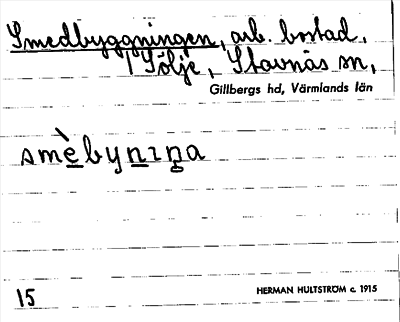 Smedbyggningen, arb. bostad,
i Sölje, Stavnäs sn,
Gillbergs hd, Värmlands län
smèbynıŋa
15
HERMAN HULTSTRÖM c. 1915